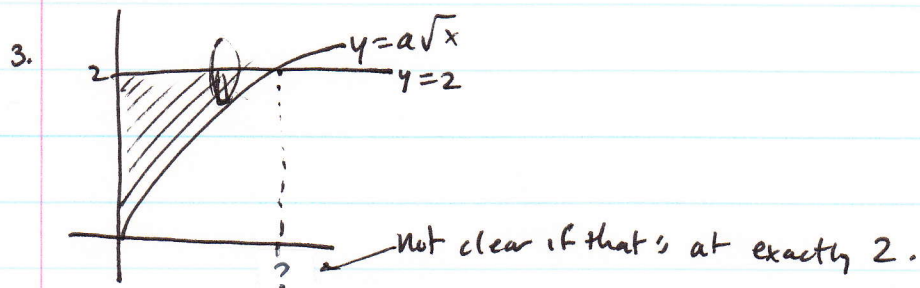 3.
y=a√x
2
y=2
?
not clear if that's at exactly 2.